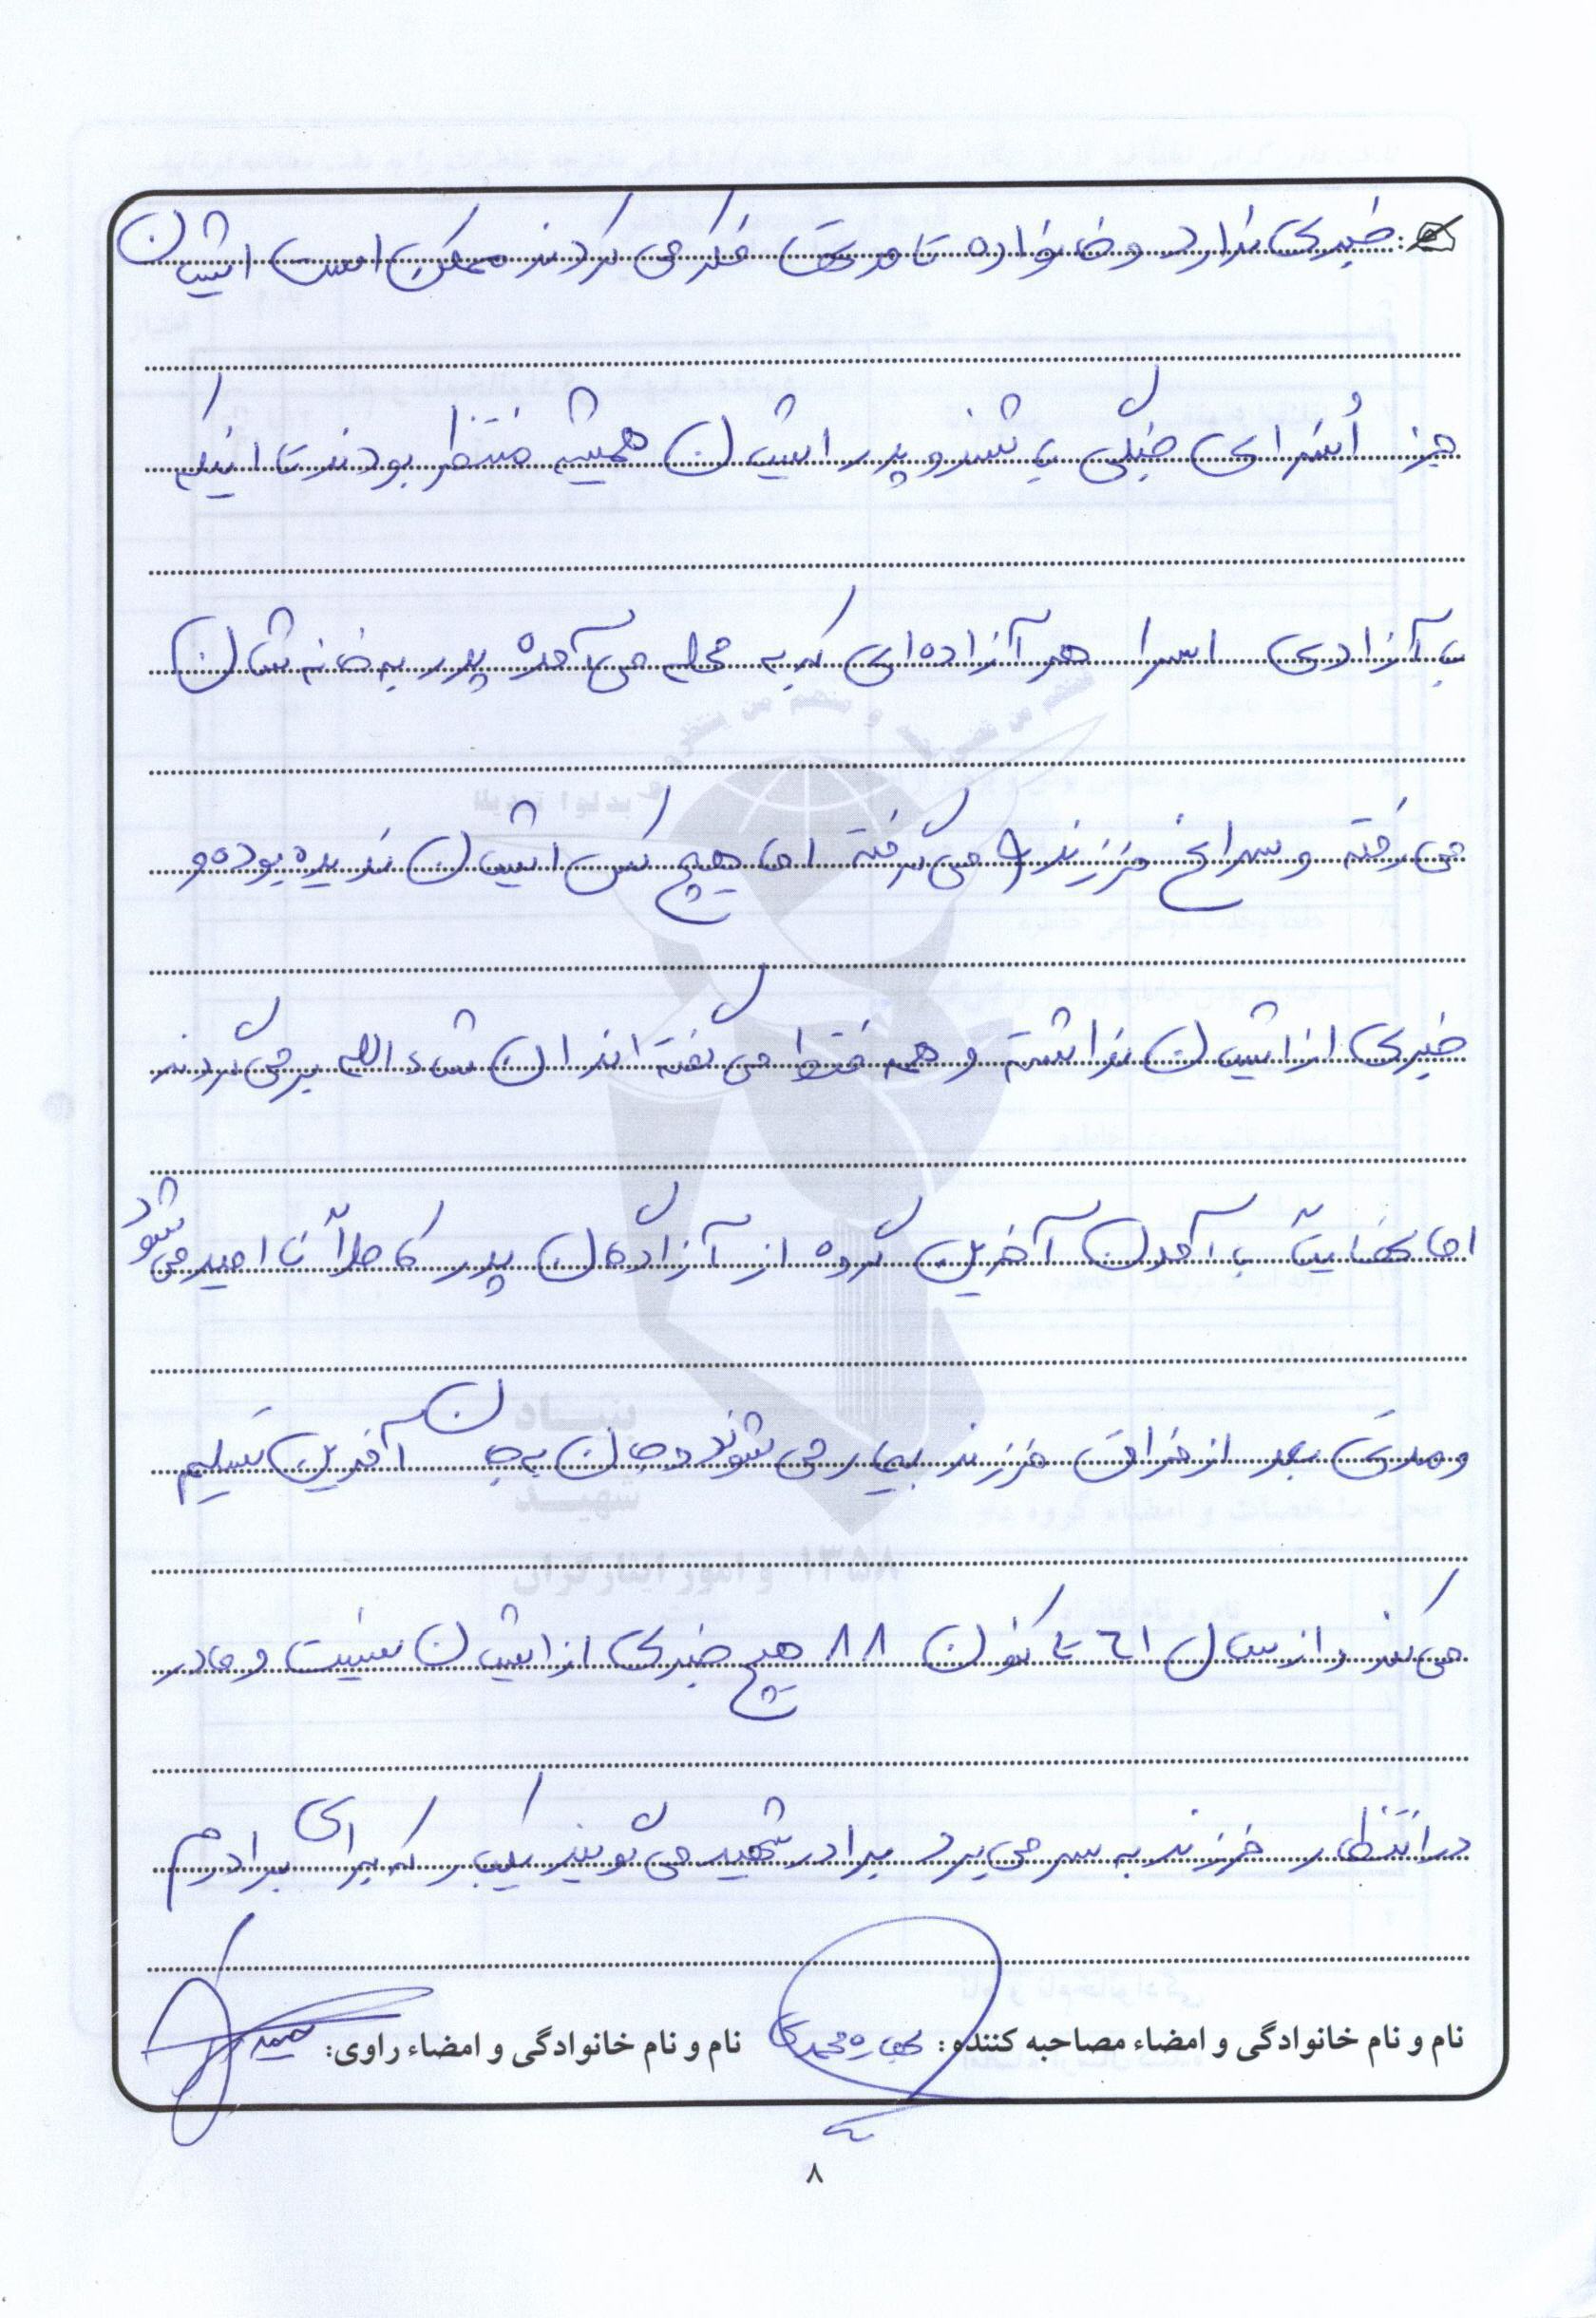 خبری ندارد و خانواده تا مدتها فکر می کردند ممکن است ایشان
جز اُسرای جنگی باشند و پدر ایشان همیشه منتظر بودند تا اینکه
با آزادی اسرا هر آزاده‌ای که به محله می‌آمده پدر به خانه شان
می رفته و سراغ فرزند را می گرفته اما هیچ کس ایشان ندیده بوده و
خبری از ایشان نداشته و همه فقط می گفته اند ان شاء الله برمی گردند
اما نهایتاً با آمدن آخرین گروه از آزادگان پدر کاملاً نا امید می شود
و مدتی بعد از فراق فرزند بیمار می شوند و جان به جان آفرین تسلیم
می کند و از سال ٦١ تا کنون ٨٨ هیچ خبری از ایشان نیست و مادر
در انتظار فرزند به سر می برد برادر شهید می گویند یکبار که برای برادرم
نام و نام خانوادگی و امضاء مصاحبه کننده: نام و نام خانوادگی و امضاء راوی:
۸
بنیاد
شهید
و امور ایثارگران
۱۳۵۸